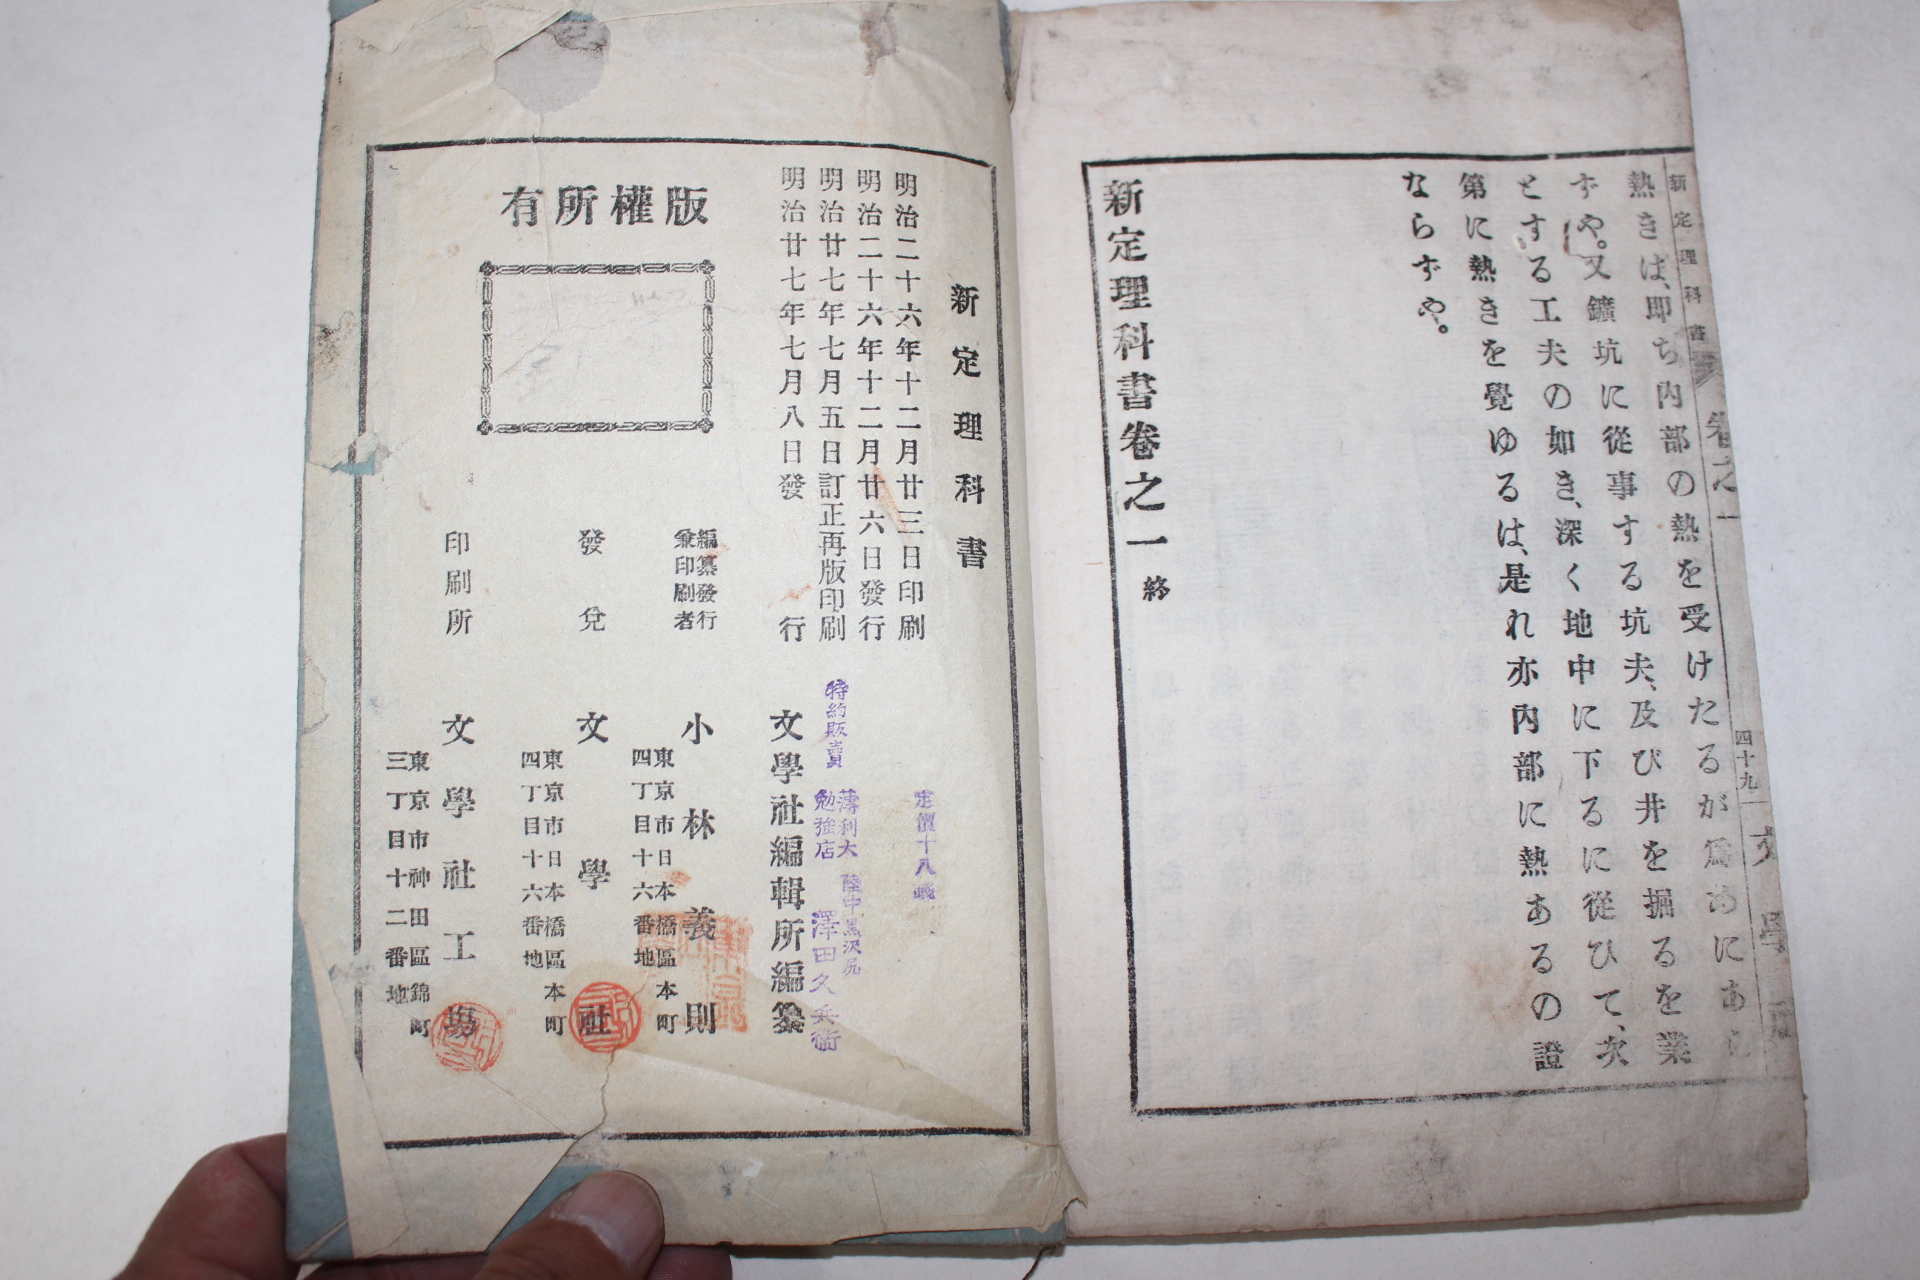 新定理科書 卷之一 四十九 文學
熱きは、即ち内部の熱を受けたるが爲めにあら
ずや。又鑛坑に從事する坑夫、及び井を掘るを業
とする工夫の如き、深く地中に下るに從ひて、次
第に熱きを覺ゆるは、是れ亦内部に熱あるの證
ならずや。
新定理科書卷之一 終
新定理科書
明治二十六年十二月廿三日印刷
明治二十六年十二月廿六日發行
明治廿七年七月五日訂正再版印刷
明治廿七年七月八日發行
定價十八錢
特約販賣
薄利大勉強店
陸中黒沢尻
澤田久兵衛
文學社編輯所編纂
版權所有
編纂發行兼印刷者
小林義則
東京市日本橋區本町
四丁目十六番地
發兌
文學社
東京市日本橋區本町
四丁目十六番地
印刷所
文學社工場
東京市神田區錦町
三丁目十二番地